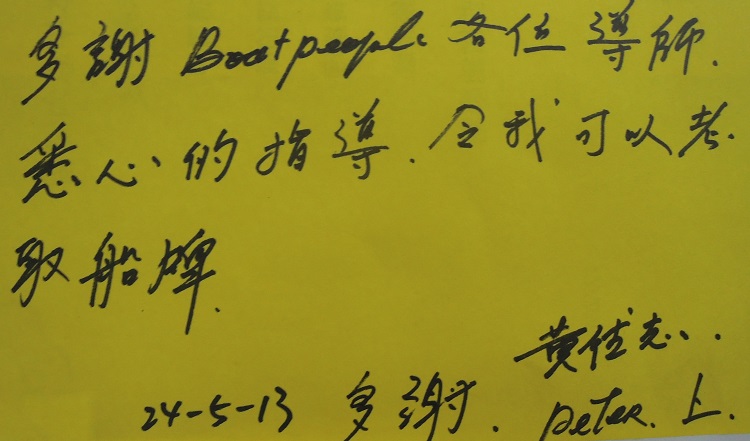 多謝 Boatpeople 各位導師.
悉心的指導.令我可以考
取船牌.
黃佳志..
24-5-13 多謝. peter. 上.